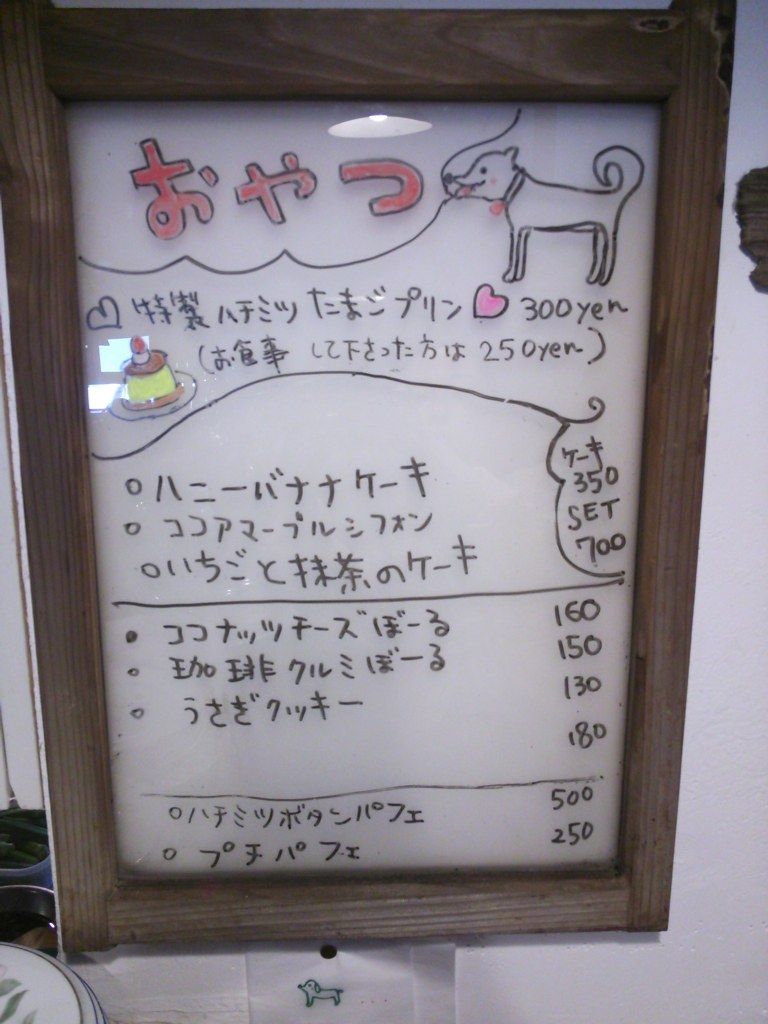 おやつ
特製 ハチミツ たまごプリン 300yen
(お食事 して下さった方は 250yen)
ケーキ
350
SET
700
○ ハニーバナナケーキ
○ ココアマーブルシフォン
○いちごと抹茶のケーキ
• ココナッツチーズぼーる 160
• 珈琲クルミぼーる 150
• うさぎクッキー 130
180
○ハチミツボタンパフェ 500
○ プチパフェ 250